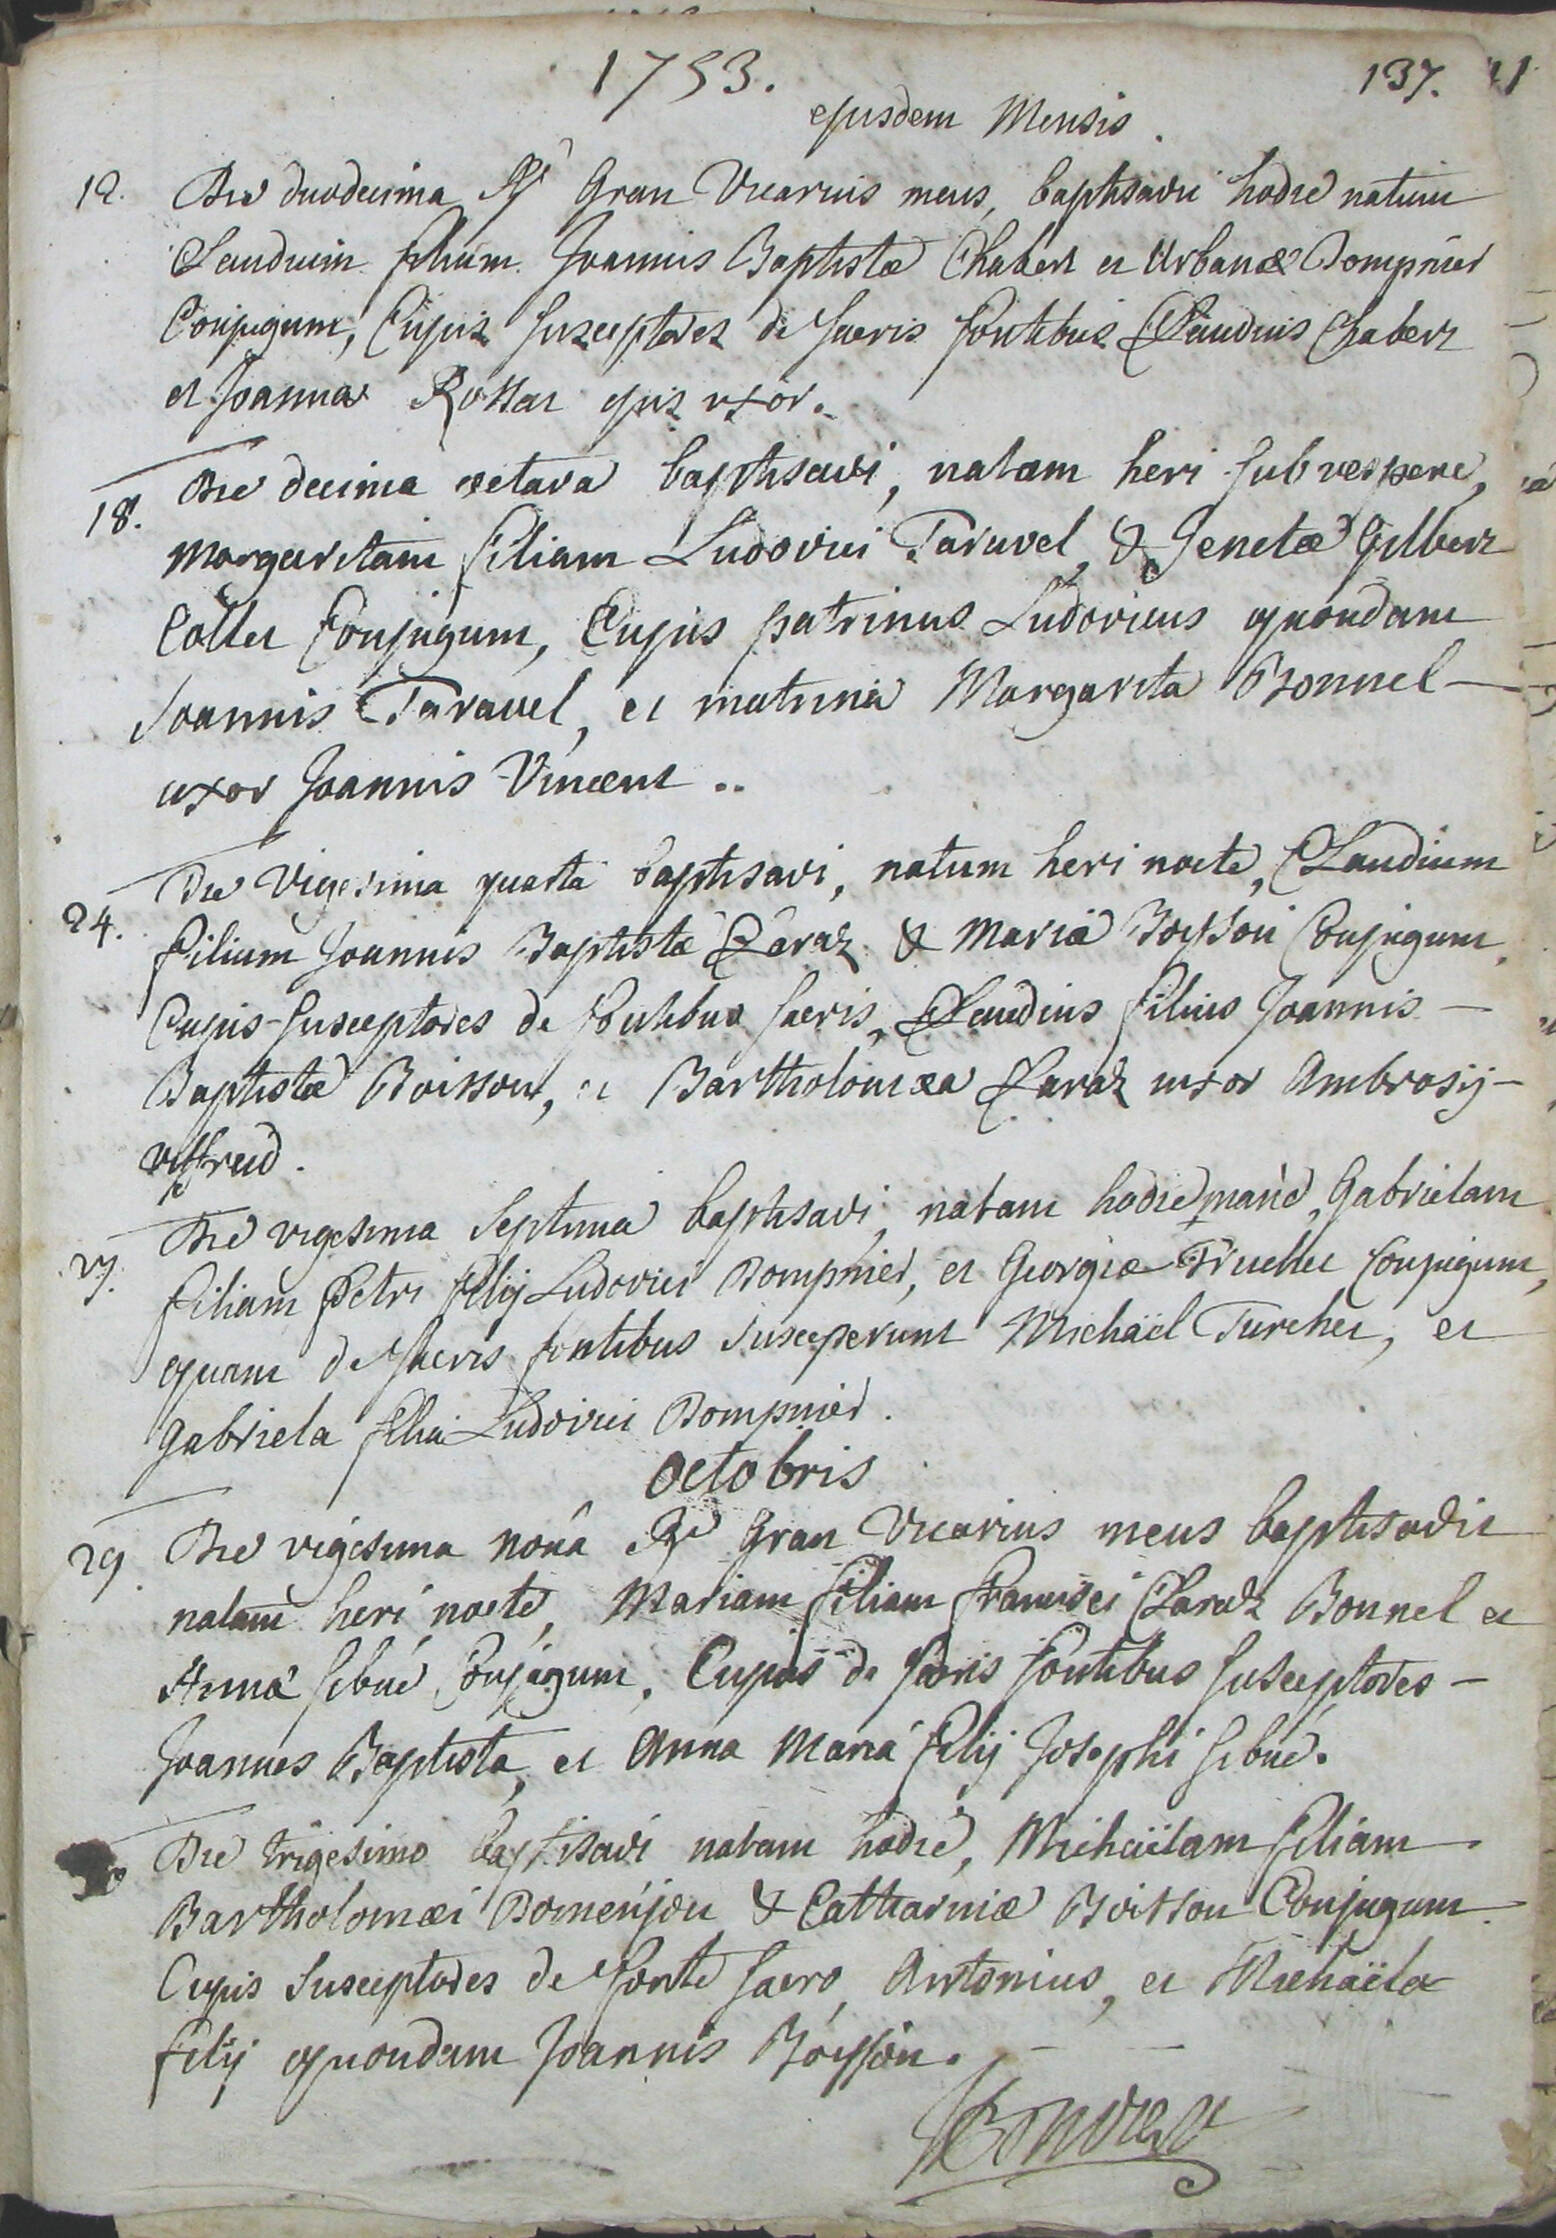 1753.
137.
ejusdem Mensis.
12. Die duodecima Rd Gran Vicarius meus, baptisavit hodie natum
Claudium filium Joannis Baptistæ Chabert et Urbanæ Dompnier
Conjugum, Cujus susceptores de sacris fontibus Claudius Chabert
et Joanna Rostat ejus uxor.
18. Die decima octava baptisavi, natam heri sub vespere,
Margaritam filiam Ludovici Taravel, & Genetæ Gilbert
Collet Conjugum, Cujus patrinus Ludovicus quondam
Joannis Taravel, et matrina Margarita Bonnel
uxor Joannis Vincent..
24. Die Vigesima quarta baptisavi, natum heri nocte, Claudium
filium Joannis Baptistæ Claraz & Maria Boisson Conjugum,
Cujus susceptores de fontibus sacris, Claudius filius Joannis
Baptistæ Boisson, et Bartholomæa Claraz uxor Ambrosij
Viffred.
27. Die vigesima septima baptisavi, natam hodie mane, Gabrielam
filiam Petri filij Ludovici Dompnier, et Georgiæ Truchet Conjugum,
quam de sacris fontibus susceperunt Michaël Turchet, et
Gabriela filia Ludovici Dompnier.
Octobris
29. Die vigesima nona Rd Gran Vicarius meus baptisavit
natam heri nocte, Mariam filiam Francisci Claraz Bonnel et
Anna Sibué Conjugum, Cujus de sacris fontibus susceptores
Joannes Baptista, et Anna Maria filij Josephi Sibué.
Die trigesimo baptisavi natam hodie, Michaëlam filiam
Bartholomæi Domenjon & Catharinæ Boisson Conjugum
Cujus susceptores de fonte sacro, Antonius, et Michaëla
filij quondam Joannis Boisson.